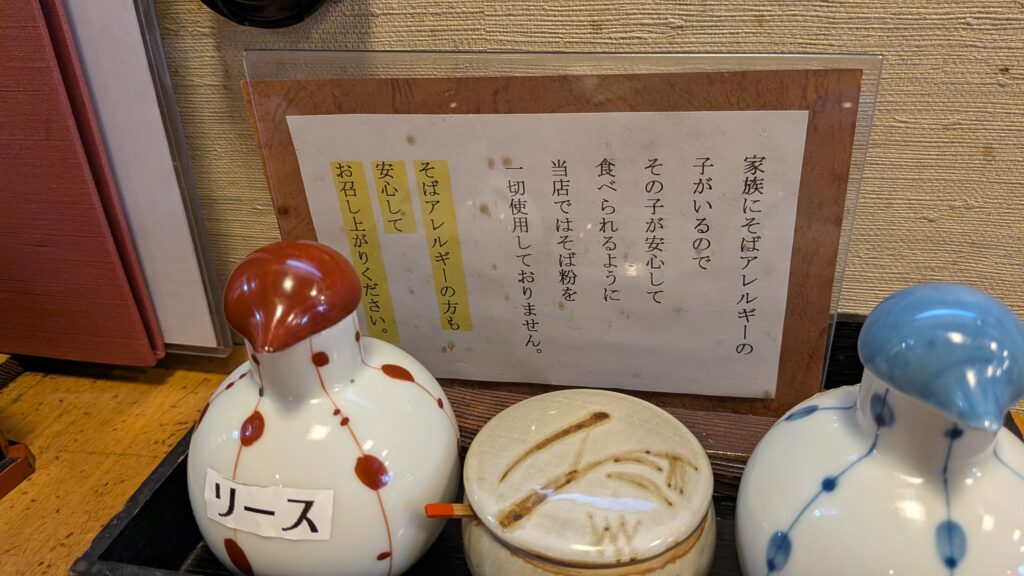 家族にそばアレルギーの
子がいるので
その子が安心して
食べられるように
当店ではそば粉を
一切使用しておりません。
そばアレルギーの方も
安心して
お召し上がりください。
リース